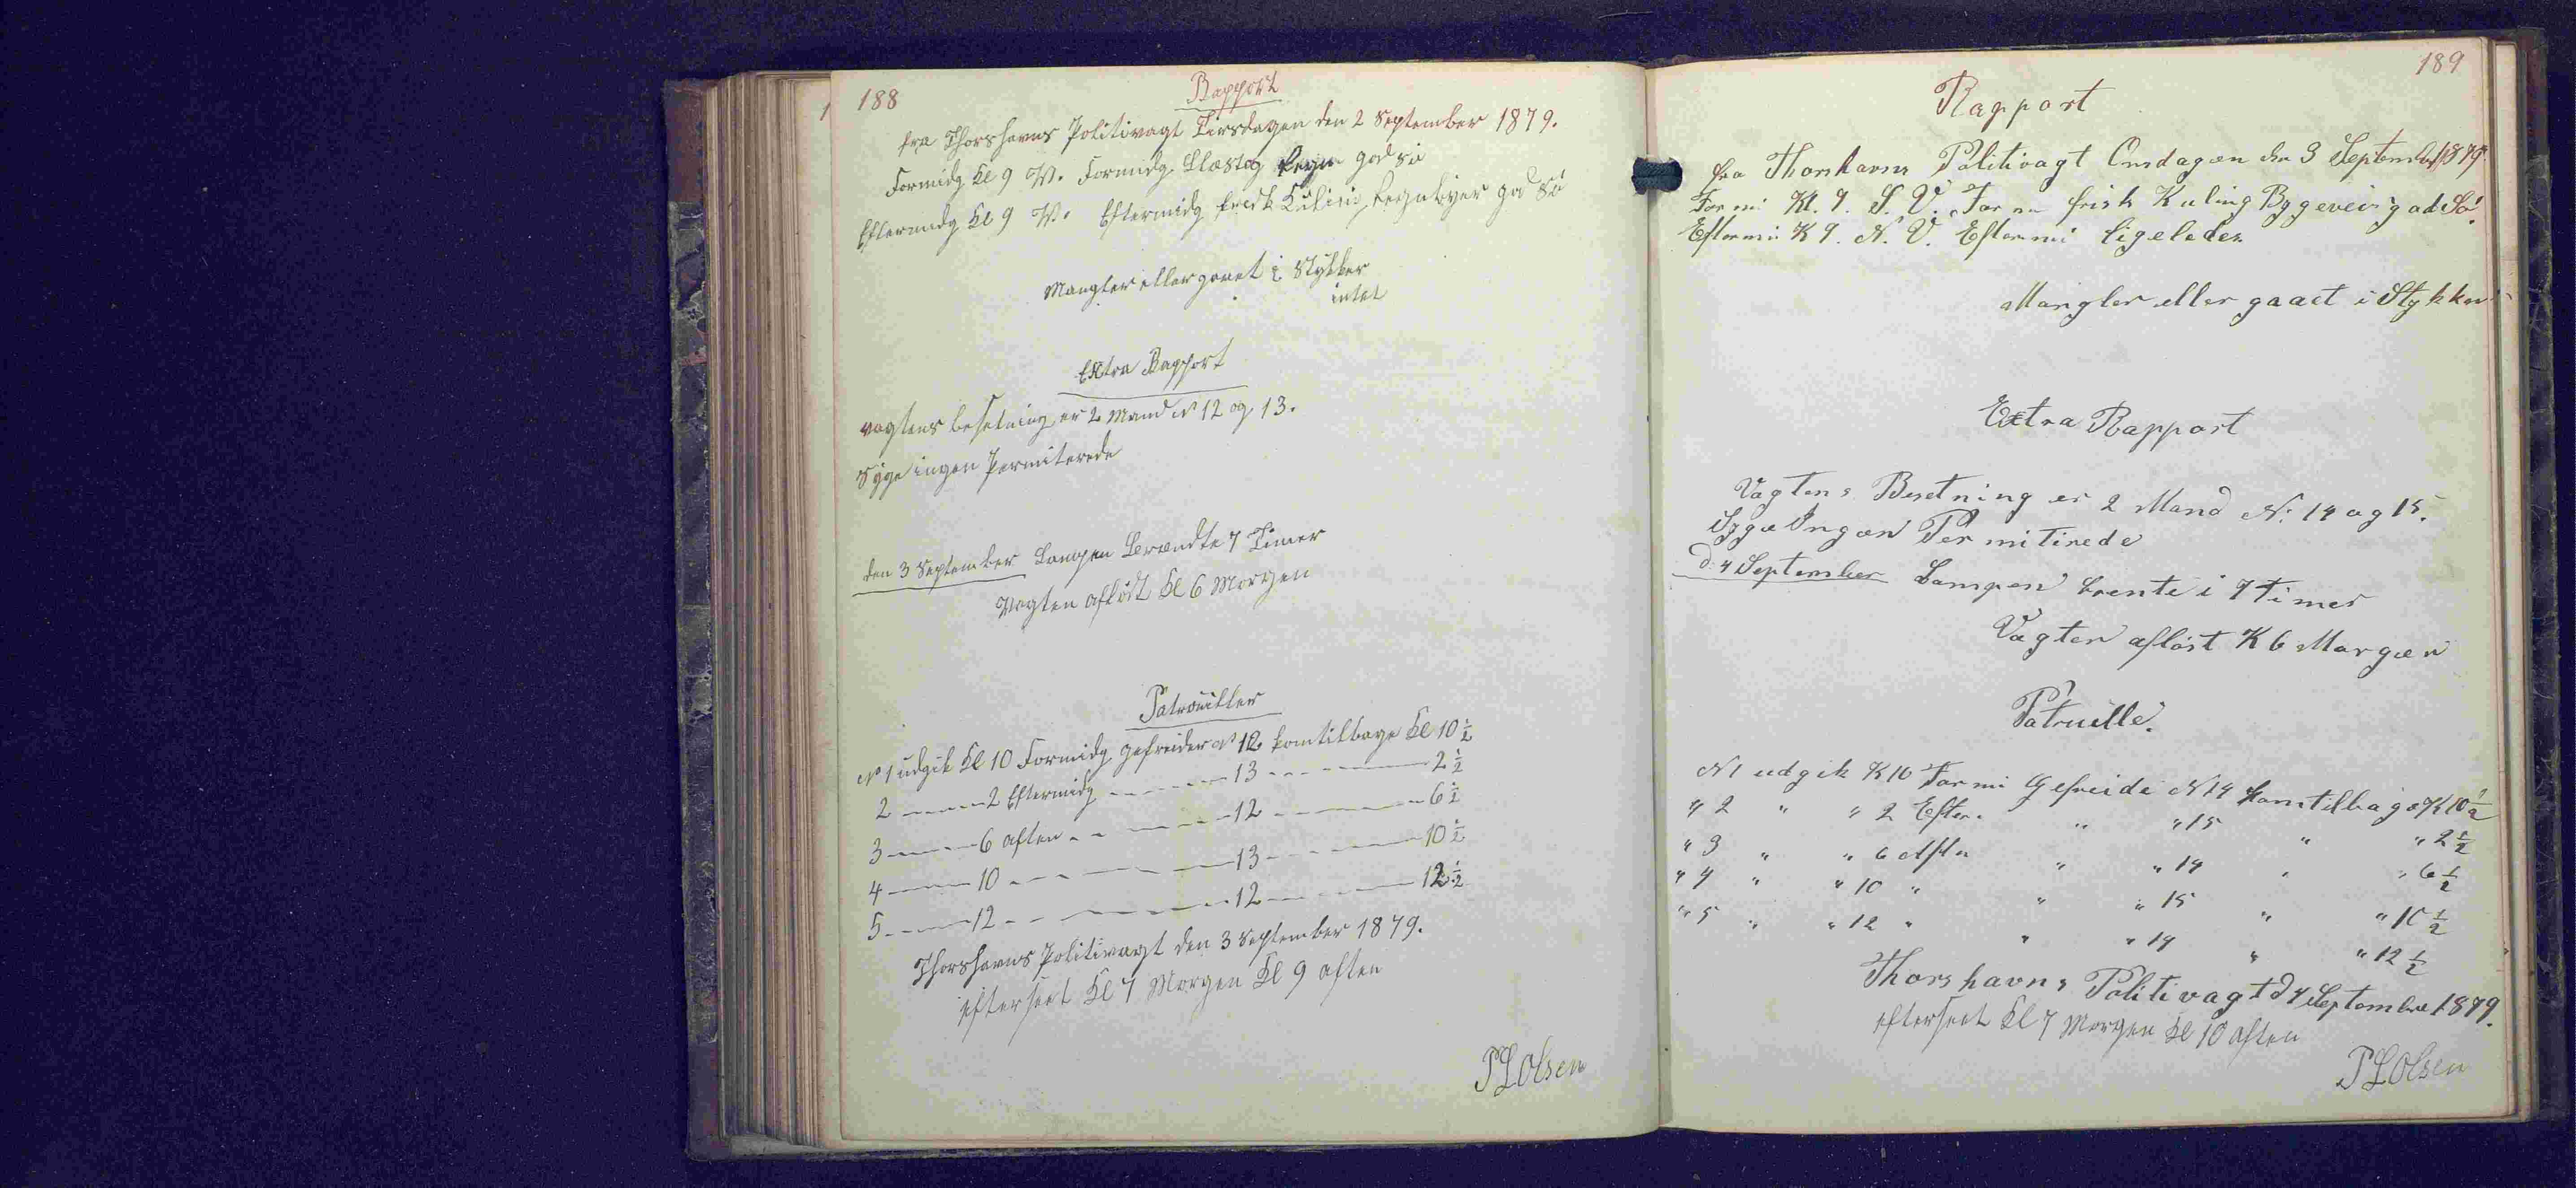 188
Rapport
fra Thorshavns Politivagt Tirsdagen den 2 September 1879.
Formidg Kl 9 W. Formidg Blæstog Regn god sö
Eftermidg Kl 9 W. Eftermidg friedk Kuling, Regnbyer god Sö
Mangler eller gaaet i Stykker
intet
Extra Rapport
vagtens besetning er 2 Mand No 12 og 13.
Syge ingen Permiterede
den 3 September Lampen Brændte 7 Timer
Vagten aflöst Kl 6 Morgen
Patrouiller
No 1 udgik Kl 10 Formidg Gefreider No 12 komtilbage Kl 10 1/2
2 ——— 2 Eftermidg ——— 13 ——— 2 1/2
3 ——— 6 aften ——— 12 ——— 6 1/2
4 ——— 10 ——— 13 ——— 10 1/2
5 ——— 12 ——— 12 ——— 12 1/2
Thorshavns Politivagt den 3 September 1879.
efterseet Kl 7 Morgen Kl 9 aften
P L Olsen
189
Rapport
fra Thorshavns Politivagt Onsdagen den 3 September 1879
Formi Kl. 9. S. V. Form frisk Kuling Byggeveir god Sö.
Eftermi K 9. N. V. Eftermi ligeledes
Mangler eller gaaet i Stykker
Extra Rapport
Vagtens Besetning er 2 Mand N: 14 og 15.
Syge Ingen Permitirede
d. 4 September Lampen brente i 7 Timer
Vagten aflöst K 6 Morgen
Patruille.
N 1 udgik K 10 Formi Gefreide N 14 komtilbage K 10 1/2
" 2 " " 2 Efter. " " 15 " " 2 1/2
" 3 " " 6 Aftn " " 14 " " 6 1/2
" 4 " " 10 " " " 15 " " 10 1/2
" 5 " " 12 " " " 14 " " 12 1/2
Thorshavns Politivagt d 4 September 1879.
efterseet Kl 7 Morgen Kl 10 aften
P L Olsen